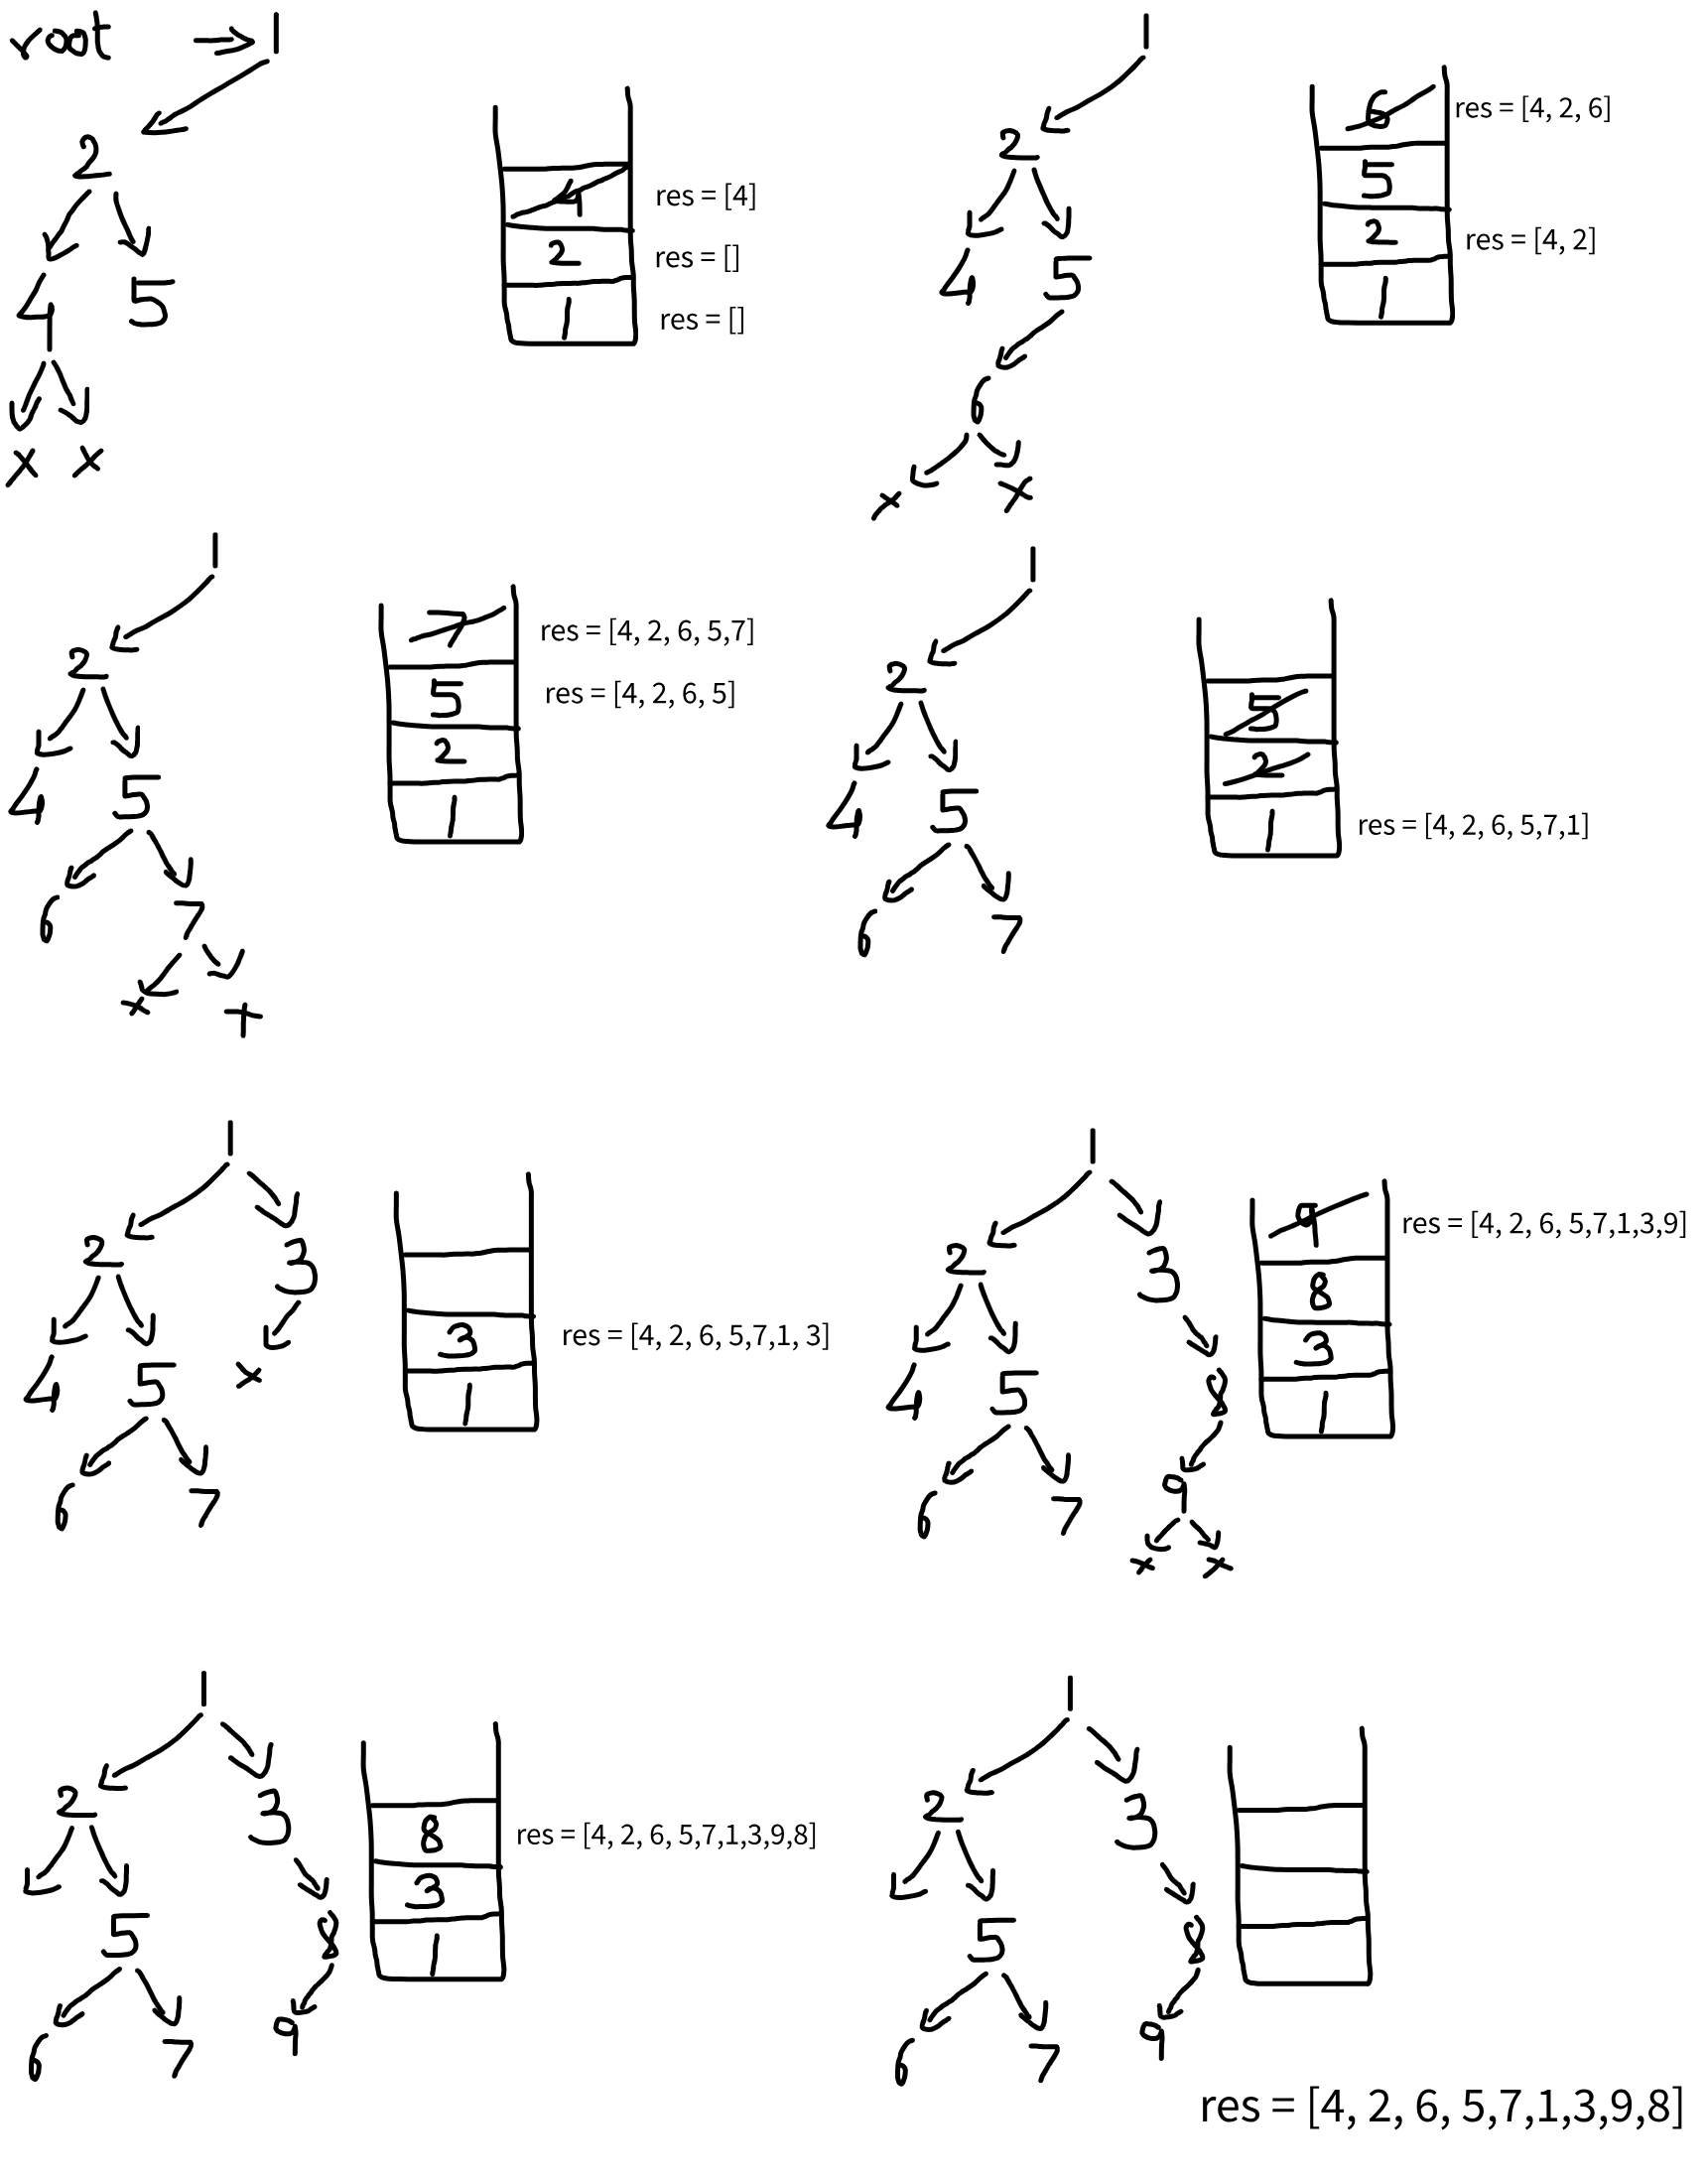 root => 1
2
4 5
x x
4
2
1
res = [4]
res = []
res = []
1
2
4 5
6
x x
6
5
2
1
res = [4, 2, 6]
res = [4, 2]
1
2
4 5
6 7
x x
7
5
2
1
res = [4, 2, 6, 5,7]
res = [4, 2, 6, 5]
1
2
4 5
6 7
5
2
1
res = [4, 2, 6, 5,7,1]
1
2 3
4 5 x
6 7
3
1
res = [4, 2, 6, 5,7,1, 3]
1
2 3
4 5 8
6 7 9
x x
9
8
3
1
res = [4, 2, 6, 5,7,1,3,9]
1
2 3
5 8
6 7 9
8
3
1
res = [4, 2, 6, 5,7,1,3,9,8]
1
2 3
5 8
6 7 9
res = [4, 2, 6, 5,7,1,3,9,8]